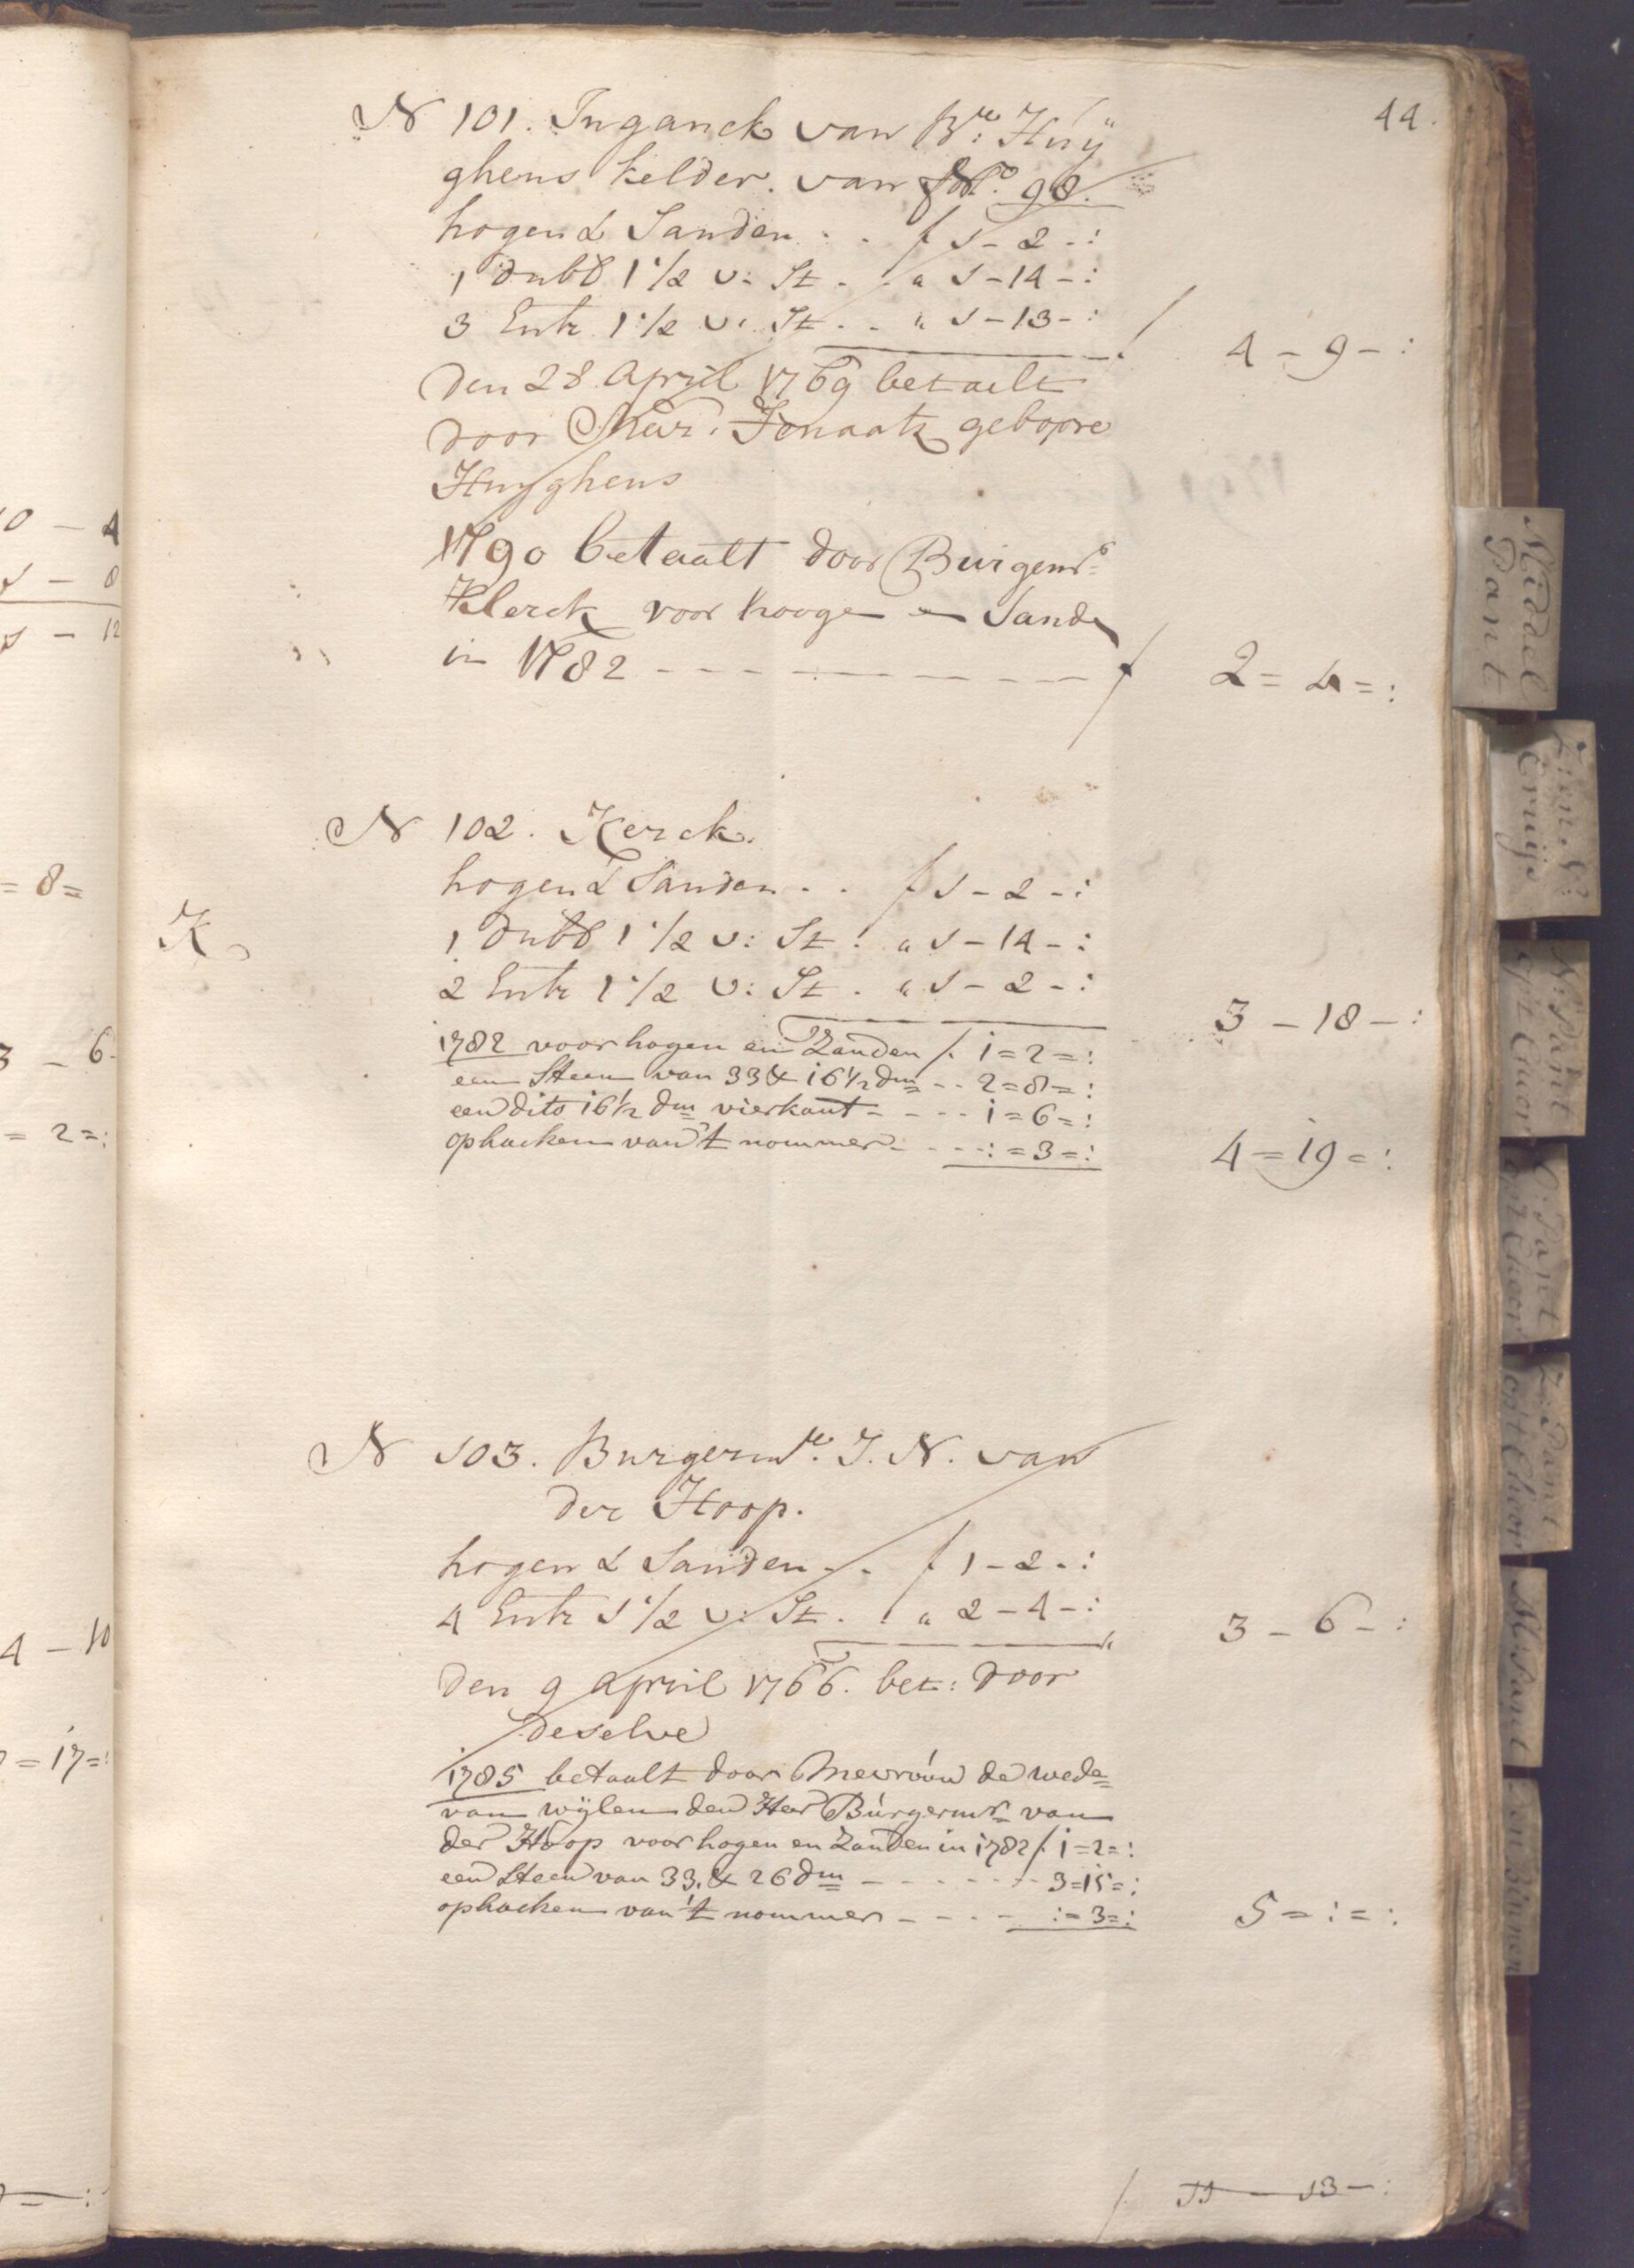 44.
N 101. Inganck van B:re Huÿ
ghens kelder. van No. 98.
hogen & Sanden . . f 1 - 2 - :
1 dubb 1 1/2 v: St . . " 1 - 14 - :
3 Enk 1 1/2 v: St . . " 1 - 13 - :
f 4 - 9 - :
Den 28 April 1769 betaelt
door Mevr. Jenaatz geboore
Huyghens
1790 betaalt door Burgemr
Klerck voor hooge en Sande
in 1782 - - - - - - - - - f 2 = 4 = :
N 102. Kerck.
hogen & Sanden . . f 1 - 2 - :
K
1 dubb 1 1/2 v: St . " 1 - 14 - :
2 Enk 1 1/2 v: St . " 1 - 2 - :
3 - 18 - :
1782 voor hogen en Zanden f. 1 = 2 = :
een Steen van 33 & 16 1/2 dm - - 2 = 8 = :
een dito 16 1/2 dm vierkant - - - - 1 = 6 = :
ophacken van 't nommer - - - - : = 3 = :
4 = 19 = :
N 103. Burgermre. J. N. van
der Hoop.
hogen & Sanden . . f 1 - 2 - :
4 Enk 1 1/2 v: St . . " 2 - 4 - :
3 - 6 - :
Den 9 April 1766. bet: door
deselve
1785 betaalt door Mevrouw de wede
van wylen den Heer Burgermr van
der Hoop voor hogen en Zanden in 1782 f. 1 = 2 = :
een Steen van 33. & 26 dm - - - - - - 3 = 15 = :
ophacken van 't nommer - - - - : = 3 = :
5 = : = :
f 11 - 13 - :
0 - 4
1 - 8
1 - 12
= 8 =
3 - 6
= 2 = :
4 - 10
= 17 = :
Middel
Pant
Cruijs
N: Pant
op't Choor
Z: Pant
op't Choor
N: Pant